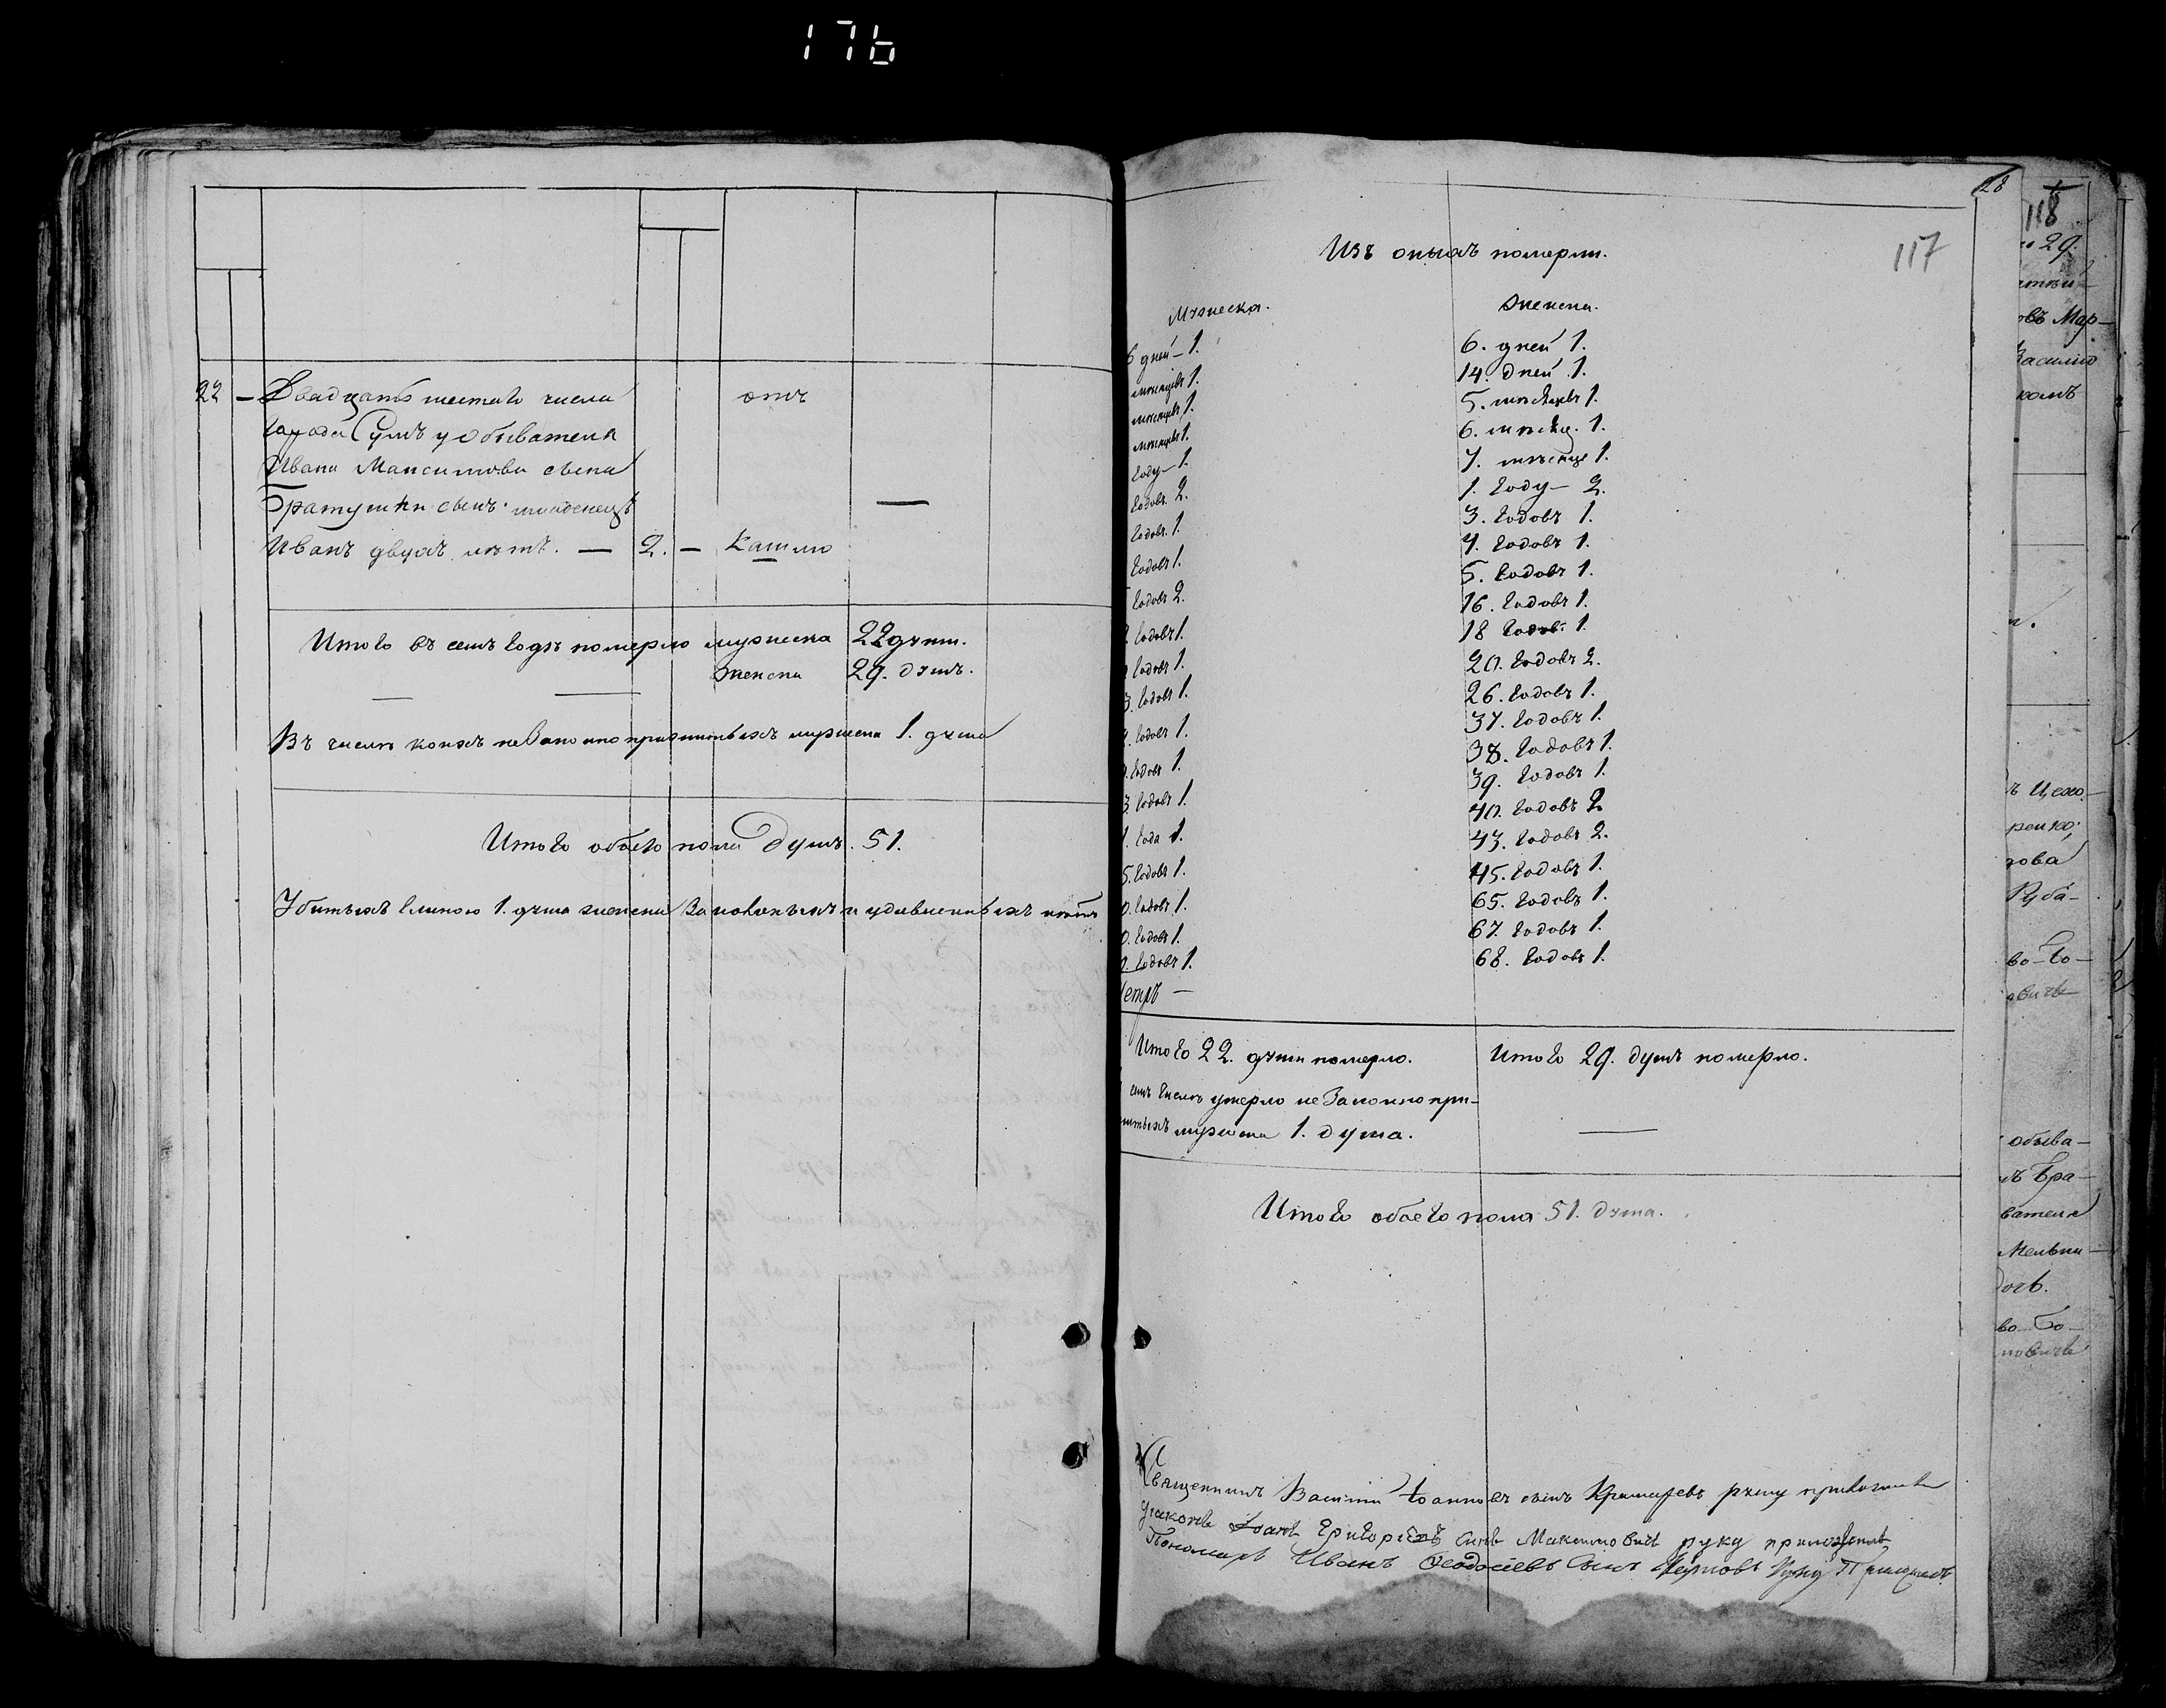 176
22 — Двадцать шестаго числа
города Сумъ у обывателя
Ивана Максимова сына
Братушки сынъ младенецъ
Иванъ двухъ лѣтъ. — 2. —
отъ
кашлю
—
Итого въ семъ годѣ померло мужеска 22 души.
женска 29. душъ.
Въ числѣ коихъ незаконноприжитыхъ мужеска 1. душа
Итого обоего пола душъ. 51.
Убитыхъ глиною 1. душа женска
28
117
Изъ оныхъ померли.
Мужеска.
дней — 1.
мѣсяцовъ 1.
мѣсяцовъ 1.
мѣсяцовъ 1.
году — 1.
годовъ. 2.
годовъ. 1.
годовъ 1.
годовъ 2.
годовъ 1.
годовъ 1.
3. годовъ 1.
годовъ 1.
годовъ 1.
3. годовъ 1.
1. года 1.
5. годовъ 1.
0. годовъ 1.
0. годовъ 1.
годовъ 1.
Женска.
6. дней 1.
14. дней 1.
5. мѣсяцовъ 1.
6. мѣсяц. 1.
7. мѣсяце 1.
1. году — 2.
3. годовъ 1.
4. годовъ 1.
5. годовъ 1.
16. годовъ 1.
18 годов. 1.
20. годовъ 2.
26. годовъ 1.
37. годовъ 1.
38. годовъ 1.
39. годовъ 1.
40. годовъ 2
43. годовъ 2.
45. годовъ 1.
65. годовъ 1.
67. годовъ 1.
68. годовъ 1.
Итого 22. души померло.
числѣ умерло незаконнопри-
житыхъ мужеска 1. душа.
Итого 29. душъ померло.
—
Итого обоего пола 51. душа.
Священникъ Василій Іоанновъ сынъ Крамаревъ руку приложилъ
Діаконъ Іоанъ Григоріевъ синъ Максимовичъ руку приложилъ
Пономарь Иванъ Феодосіевъ сынъ руку
118
29.
овъ Мар-
Василію
Цехо-
Руба-
во-Бо-
обыва-
Бра-
вателя
Мельни-
дочь.
во-Бо-